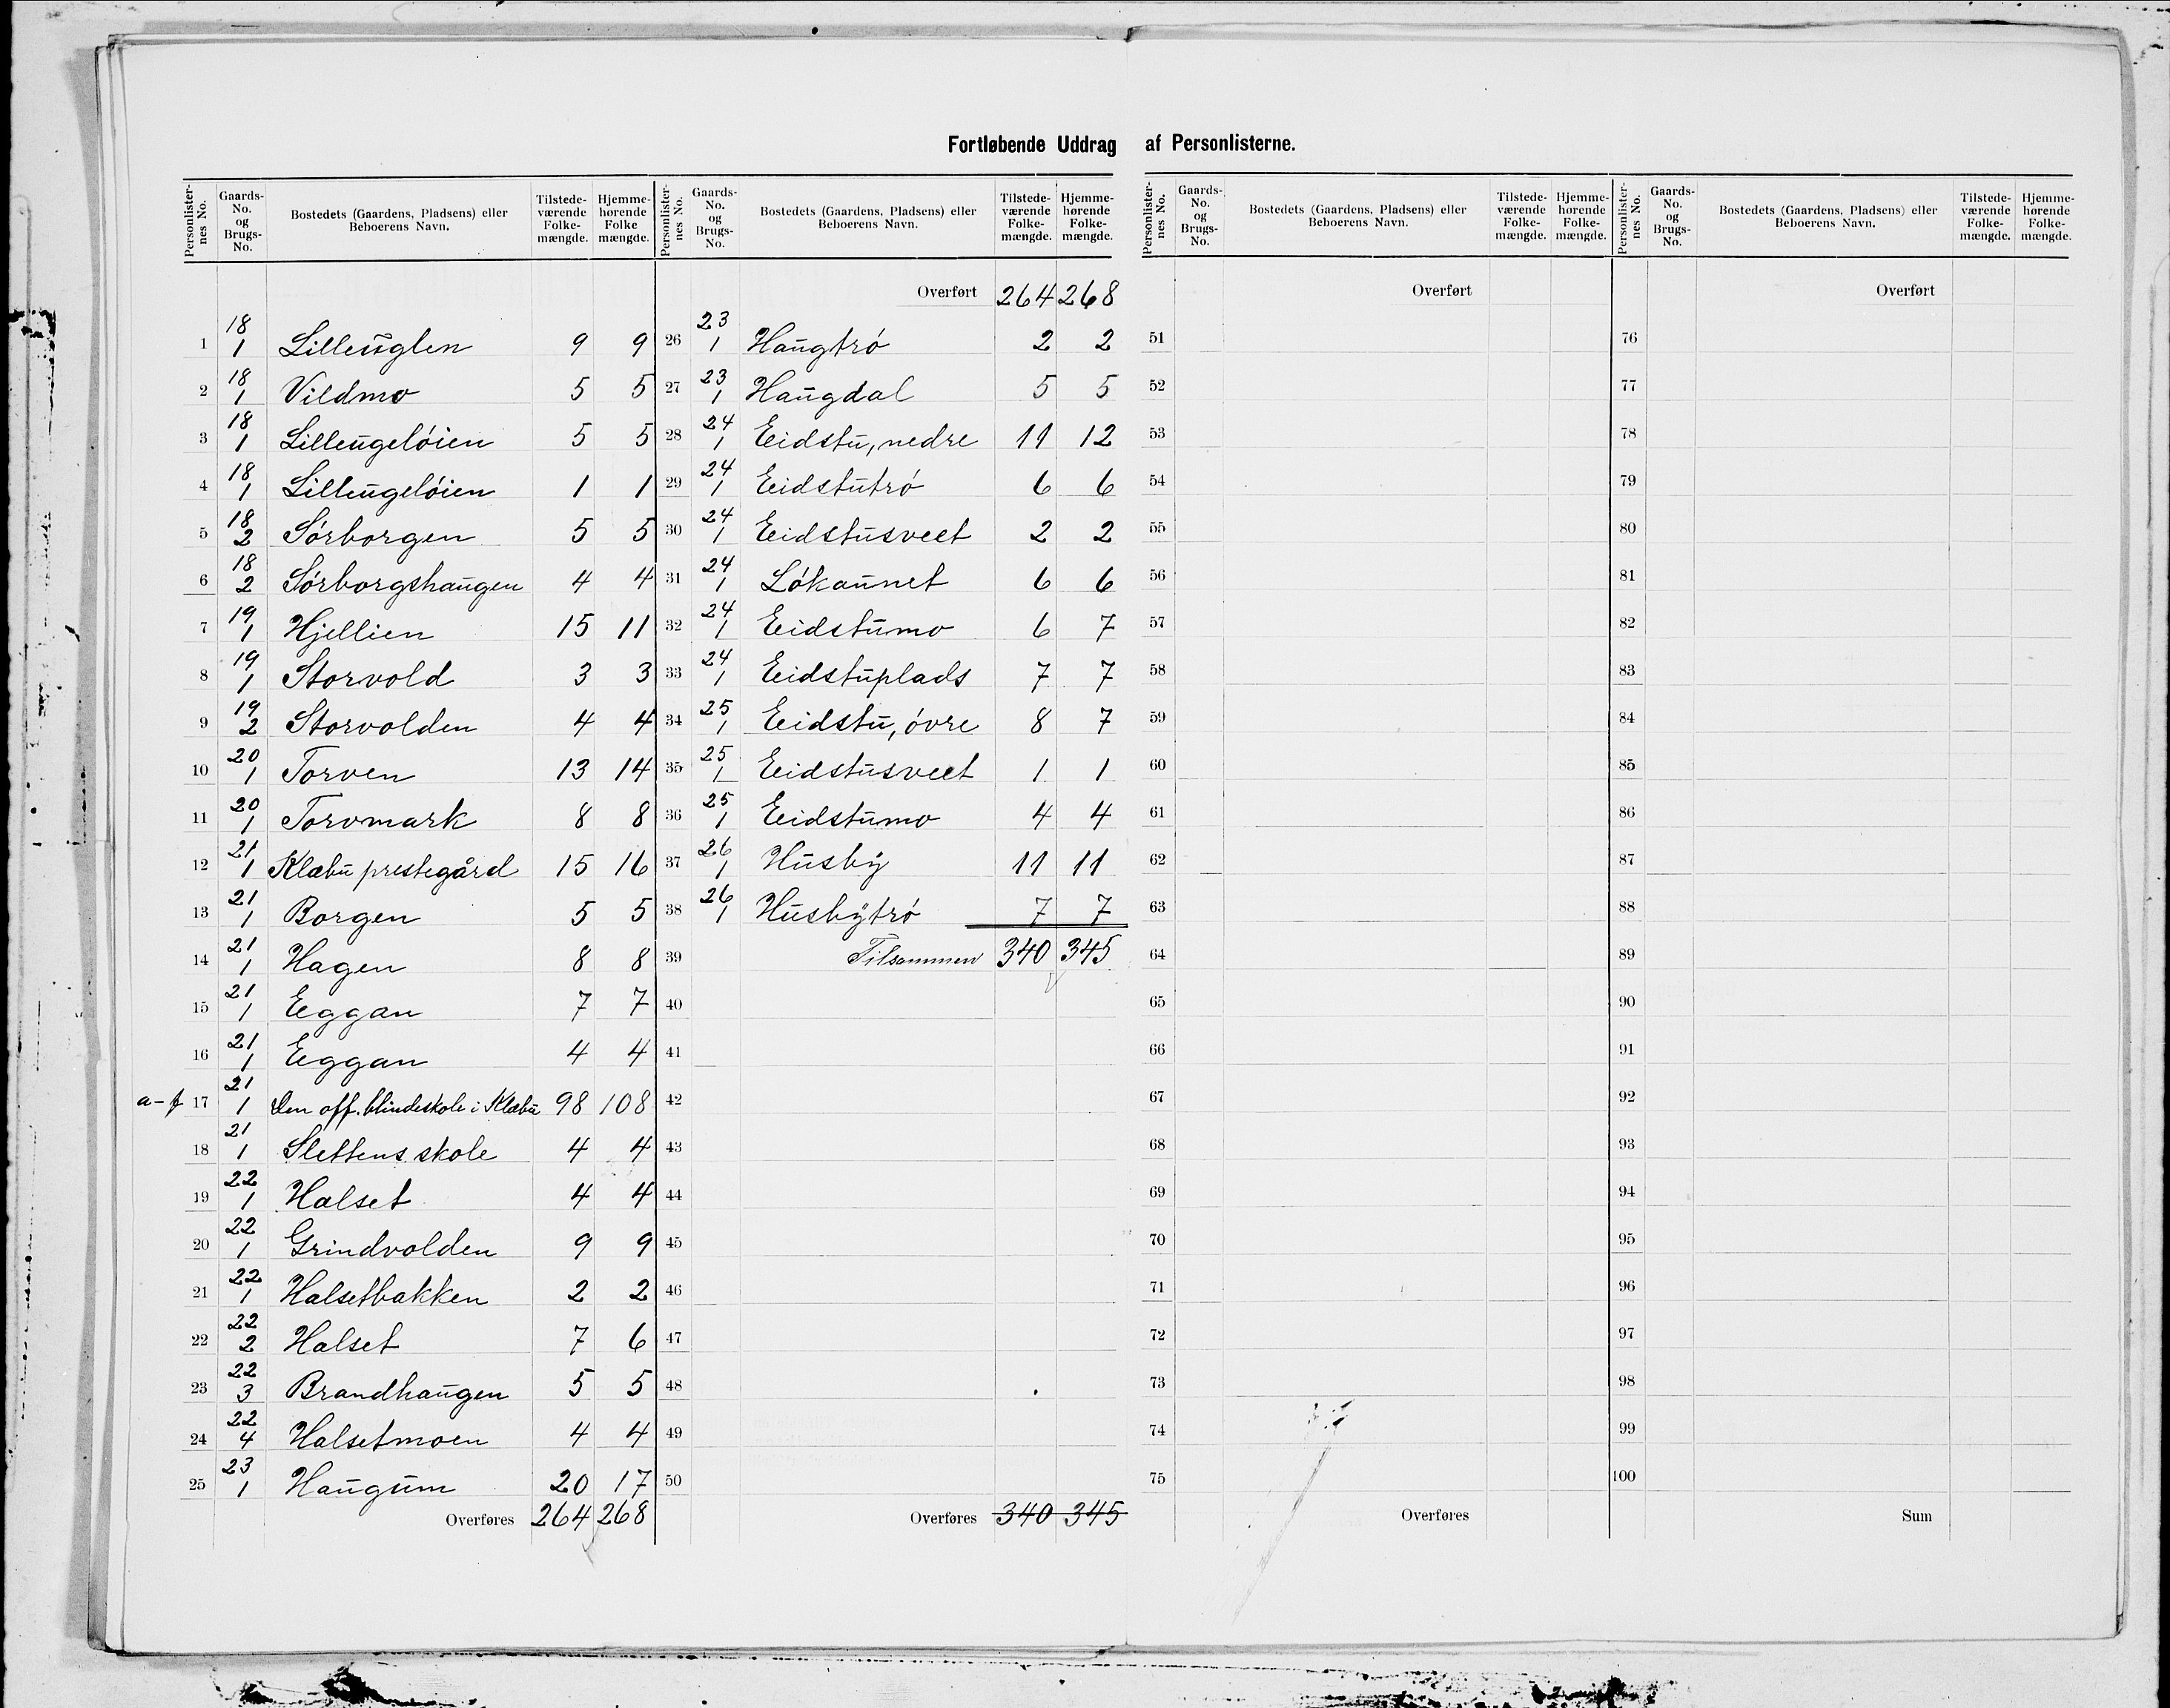 Fortløbende Uddrag af Personlisterne.
Personlister-nes No. | Gaards-No. og Brugs-No. | Bostedets (Gaardens, Pladsens) eller Beboerens Navn. | Tilstede-værende Folke-mængde. | Hjemme-hørende Folke mængde.
1 18/1 Lilleuglen 9 9
2 18/1 Vildmo 5 5
3 18/1 Lilleugelöien 5 5
4 18/1 Lilleugelöien 1 1
5 18/2 Sörborgen 5 5
6 18/2 Sörborgshaugen 4 4
7 19/1 Hjellien 15 11
8 19/1 Storvold 3 3
9 19/2 Storvolden 4 4
10 20/1 Torven 13 14
11 20/1 Torvmark 8 8
12 21/1 Klæbu prestegård 15 16
13 21/1 Borgen 5 5
14 21/1 Hagen 8 8
15 21/1 Eggan 7 7
16 21/1 Eggan 4 4
a-f 17 21/1 Den off. blindeskole i Klæbu 98 108
18 21/1 Slettens skole 4 4
19 22/1 Halset 4 4
20 22/1 Grindvolden 9 9
21 22/1 Halsetbakken 2 2
22 22/2 Halset 7 6
23 22/3 Brandhaugen 5 5
24 22/4 Halsetmoen 4 4
25 23/1 Haugum 20 17
Overføres 264 268
Personlister-nes No. | Gaards-No. og Brugs-No. | Bostedets (Gaardens, Pladsens) eller Beboerens Navn. | Tilstede-værende Folke-mængde. | Hjemme-hørende Folke-mængde.
Overført 264 268
26 23/1 Haugtrö 2 2
27 23/1 Haugdal 5 5
28 24/1 Eidstu, nedre 11 12
29 24/1 Eidstutrö 6 6
30 24/1 Eidstusveet 2 2
31 24/1 Lökaunet 6 6
32 24/1 Eidstumo 6 7
33 24/1 Eidstuplads 7 7
34 25/1 Eidstu, övre 8 7
35 25/1 Eidstusveet 1 1
36 25/1 Eidstumo 4 4
37 26/1 Husby 11 11
38 26/1 Husbytrö 7 7
39 Tilsammen 340 345
40
41
42
43
44
45
46
47
48
49
50
Overføres 340 345
Personlister-nes No. | Gaards-No. og Brugs-No. | Bostedets (Gaardens, Pladsens) eller Beboerens Navn. | Tilstede-værende Folke-mængde. | Hjemme-hørende Folke-mængde.
Overført
51
52
53
54
55
56
57
58
59
60
61
62
63
64
65
66
67
68
69
70
71
72
73
74
75
Overføres
Personlister-nes No. | Gaards-No. og Brugs-No. | Bostedets (Gaardens, Pladsens) eller Beboerens Navn. | Tilstede-værende Folke-mængde. | Hjemme-hørende Folke-mængde.
Overført
76
77
78
79
80
81
82
83
84
85
86
87
88
89
90
91
92
93
94
95
96
97
98
99
100
Sum